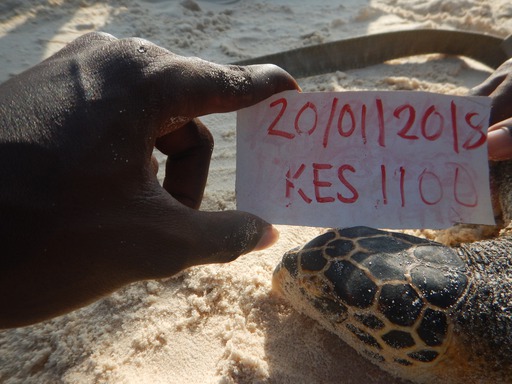 20/01/2018
KES 1100